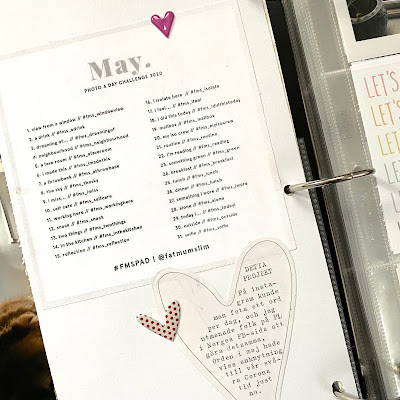 May.
PHOTO A DAY CHALLENGE 2020
1. view from a window // #fms_windowview
2. a drink // #fms_adrink
3. dreaming of... // #fms_dreamingof
4. neighbourhood // #fms_neighbourhood
5. a fave room // #fms_afaveroom
6. i made this // #fms_imadethis
7. a throwback // #fms_athrowback
8. the sky // #fms_thesky
9. i miss... // #fms_imiss
10. self care // #fms_selfcare
11. working here // #fms_workinghere
12. snack // #fms_snack
13. two things // #fms_twothings
14. in the kitchen // #fms_inthekitchen
15. reflection // #fms_reflection
16. i isolate here // #fms_isolate
17. i feel... // #fms_ifeel
18. i did this today // #fms_ididthistoday
19. mailbox // #fms_mailbox
20. my iso crew // #fms_myisocrew
21. routine // #fms_routine
22. i'm reading // #fms_reading
23. something green // #fms_green
24. breakfast // #fms_breakfast
25. lunch // #fms_lunch
26. dinner // #fms_dinner
27. something i wore // #fms_iwore
28. alone // #fms_alone
29. today i... // #fms_todayi
30. outside // #fms_outside
31. selfie // #fms_selfie
#FMSPAD | @fatmumslim
DETTA
PROJEKT
på insta-
gram kunde
man fota ett ord
per dag, och jag
utmanade folk på PL
i Norges FB-sida att
göra detsamma.
Orden i maj hade
viss anknytning
till vår svå-
ra Corona
tid just
nu.
LET'S
LET'S
LET
LE
LE
L